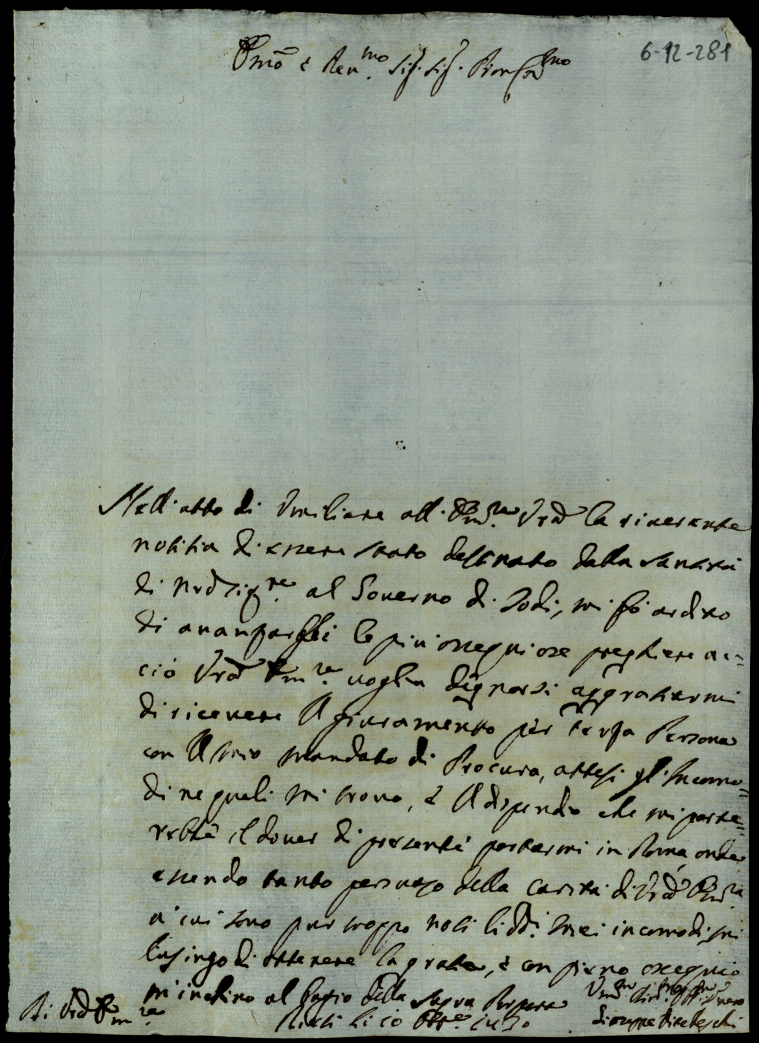 6-12-281
Em̃o e Rev.mo Sig. Sig. Pron Col.mo
Nell'atto di Umiliare all'Em.za Vrã la riverente
notitia di essere stato destinato dalla Santità
di Nrõ Sig.re al Governo di Todi, mi fò ardito
di avanzarLei le più ossequiose preghiere ac-
ciò Vrã Em.za voglia degnarsi aggratiarmi
di ricevere il giuramento per terza Persona
con il mio mandato di Procura, attesi gl'Incomo-
di ne quali mi trovo, è il dispendio che mi porta-
rebbe il dover di presente portarmi in Roma, onde
essendo tanto persuaso della Carità di Vrã Em.za
a' cui sono pur troppo noti li dd.i miei incomodi, mi
lusingo di ottenere la gratia, è con pieno ossequio
m'inchino al bagio della Sagra Porpora
Di Vrã Em.za
Rieti li 10 Ott.e
Giuseppe